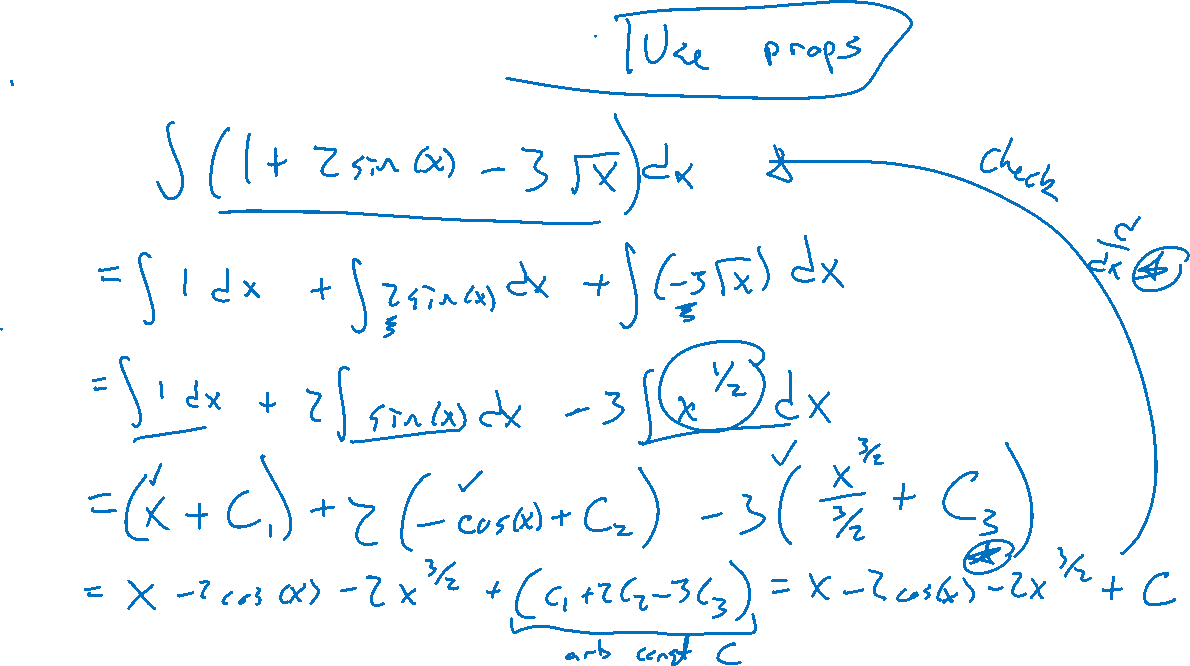 Use props
∫ (1 + 2 sin(x) - 3 √x) dx
check
d/dx
= ∫ 1 dx + ∫ 2 sin(x) dx + ∫ (-3√x) dx
= ∫ 1 dx + 2 ∫ sin(x) dx - 3 ∫ x^1/2 dx
= (x + C₁) + 2 (-cos(x) + C₂) - 3 (x^3/2 / 3/2 + C₃)
= x - 2 cos(x) - 2x^3/2 + (C₁ + 2C₂ - 3C₃) = x - 2 cos(x) - 2x^3/2 + C
arb const C